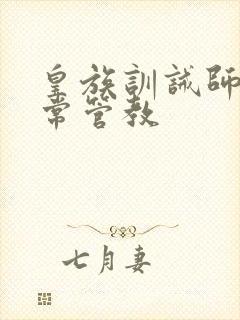 皇族訓誡師
常管教
七月妻